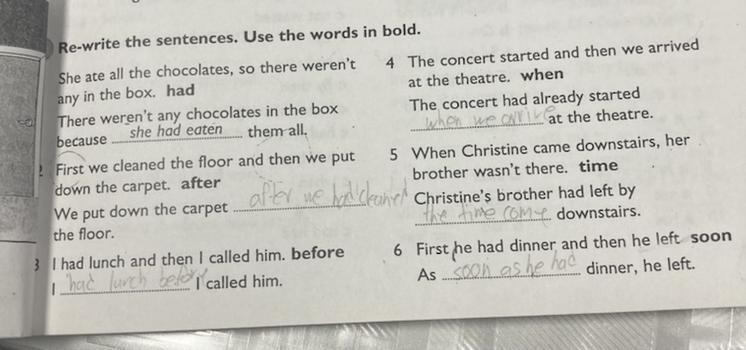 Re-write the sentences. Use the words in bold.
She ate all the chocolates, so there weren't
any in the box. had
There weren't any chocolates in the box
because she had eaten them all.
2 First we cleaned the floor and then we put
down the carpet. after
We put down the carpet after we had cleaned
the floor.
3 I had lunch and then I called him. before
I had lunch before I called him.
4 The concert started and then we arrived
at the theatre. when
The concert had already started
when we arrive at the theatre.
5 When Christine came downstairs, her
brother wasn't there. time
Christine's brother had left by
the time come downstairs.
6 First he had dinner and then he left. soon
As soon as he had dinner, he left.